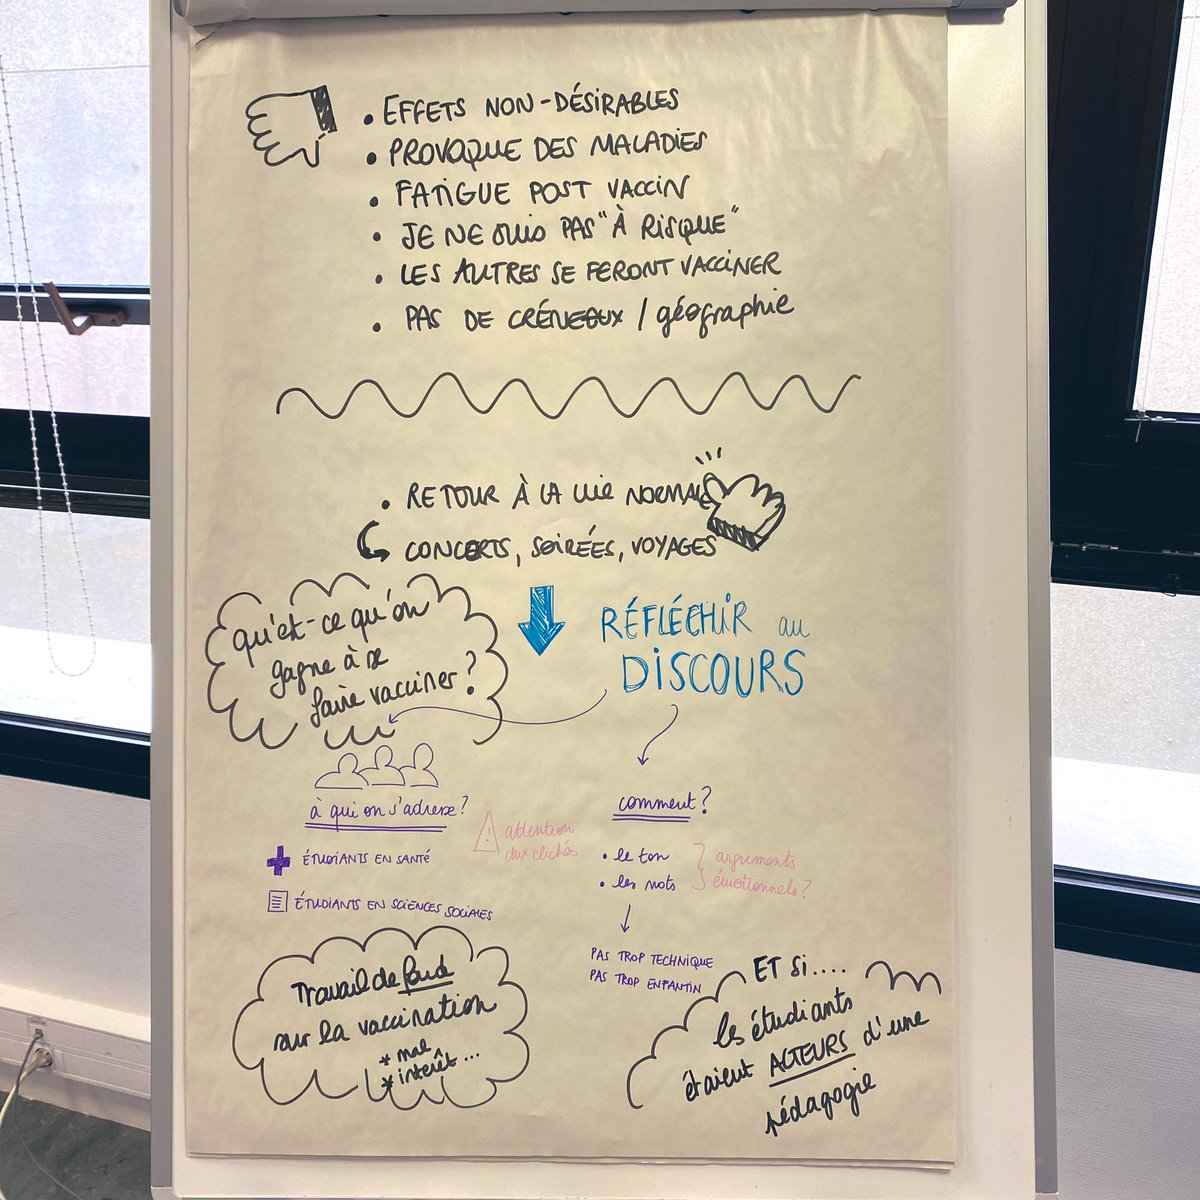 • EFFETS NON-DÉSIRABLES
• PROVOQUE DES MALADIES
• FATIGUE POST VACCIN
• JE NE SUIS PAS "À RISQUE"
• LES AUTRES SE FERONT VACCINER
• PAS DE CRÉNEAUX / géographie
• RETOUR À LA VIE NORMALE
CONCERTS, SOIRÉES, VOYAGES
RÉFLÉCHIR au
DISCOURS
qu'est-ce qu'on
gagne à se
faire vacciner?
à qui on s'adresse?
ÉTUDIANTS EN SANTÉ
ÉTUDIANTS EN SCIENCES SOCIALES
! attention
aux clichés
comment?
• le ton
• les mots
arguments
émotionnels?
PAS TROP TECHNIQUE
PAS TROP ENFANTIN
Travail de fond
sur la vaccination
* mal
* intérêt...
ET Si....
les étudiants
étaient ACTEURS d'une
pédagogie